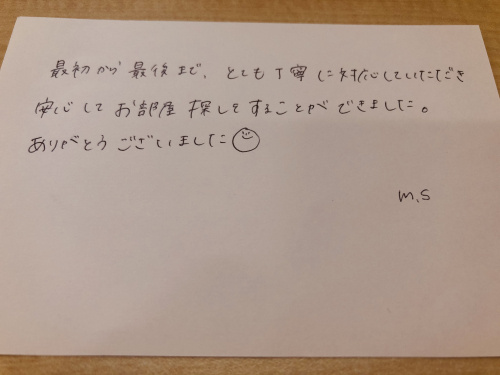 最初から最後まで、とても丁寧に対応していただき
安心してお部屋探しをすることができました。
ありがとうございました
M.S